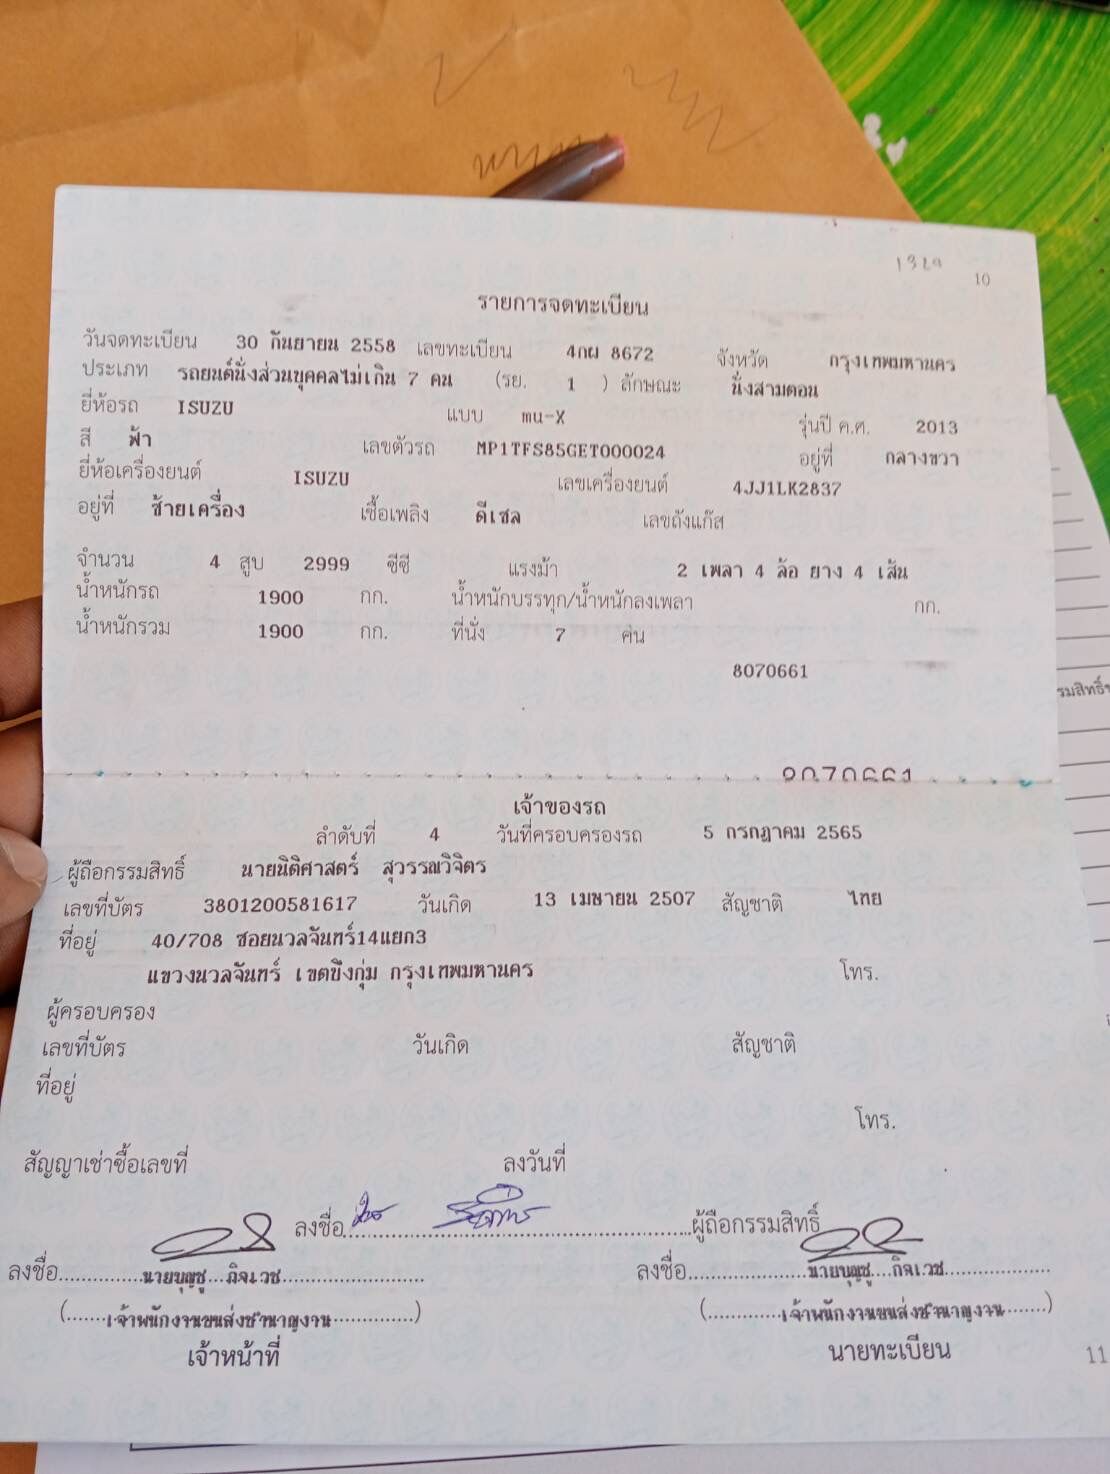 10
รายการจดทะเบียน
วันจดทะเบียน 30 กันยายน 2558 เลขทะเบียน 4กผ 8672 จังหวัด กรุงเทพมหานคร
ประเภท รถยนต์นั่งส่วนบุคคลไม่เกิน 7 คน (รย. 1 ) ลักษณะ นั่งสามตอน
ยี่ห้อรถ ISUZU แบบ mu-X รุ่นปี ค.ศ. 2013
สี ฟ้า เลขตัวรถ MP1TFS85GET000024 อยู่ที่ กลางขวา
ยี่ห้อเครื่องยนต์ ISUZU เลขเครื่องยนต์ 4JJ1LK2837
อยู่ที่ ซ้ายเครื่อง เชื้อเพลิง ดีเซล เลขถังแก๊ส
จำนวน 4 สูบ 2999 ซีซี แรงม้า 2 เพลา 4 ล้อ ยาง 4 เส้น
น้ำหนักรถ 1900 กก. น้ำหนักบรรทุก/น้ำหนักลงเพลา กก.
น้ำหนักรวม 1900 กก. ที่นั่ง 7 คน
8070661
8070661
เจ้าของรถ
ลำดับที่ 4 วันที่ครอบครองรถ 5 กรกฎาคม 2565
ผู้ถือกรรมสิทธิ์ นายนิติศาสตร์ สุวรรณวิจิตร
เลขที่บัตร 3801200581617 วันเกิด 13 เมษายน 2507 สัญชาติ ไทย
ที่อยู่ 40/708 ซอยนวลจันทร์14แยก3
แขวงนวลจันทร์ เขตบึงกุ่ม กรุงเทพมหานคร โทร.
ผู้ครอบครอง
เลขที่บัตร วันเกิด สัญชาติ
ที่อยู่
โทร.
สัญญาเช่าซื้อเลขที่ ลงวันที่
ลงชื่อ ผู้ถือกรรมสิทธิ์
ลงชื่อ นายบุญชู กิจเวช ลงชื่อ นายบุญชู กิจเวช
(เจ้าพนักงานขนส่งชำนาญงาน) (เจ้าพนักงานขนส่งชำนาญงาน)
เจ้าหน้าที่ นายทะเบียน
11